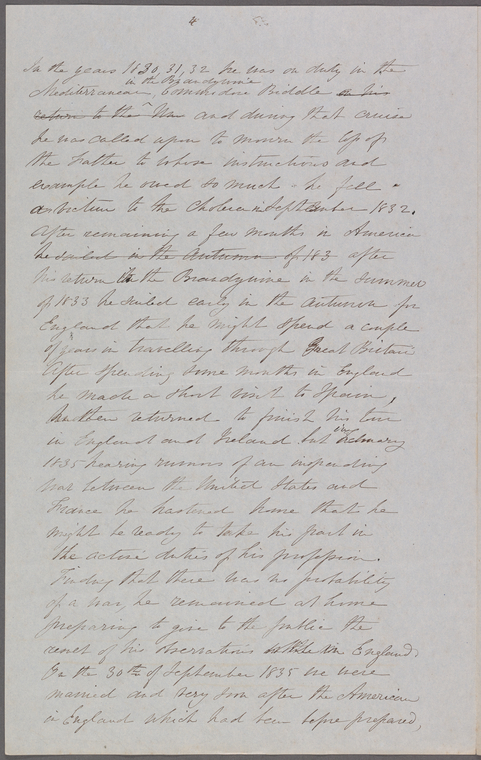 4
In the years 1830, 31, 32 he was on duty in the
in the Brandywine
Mediterranean, Commodore Biddle on his
return to the and during that cruise
he was called upon to mourn the loss of
the Father to whose instructions and
example he owed so much - he fell a
a victim to the Cholera in September 1832.
After remaining a few months in America
he sailed in the Autumn of 183 after
his return in the Brandywine in the summer
of 1833 he sailed early in the autumn for
England that he might spend a couple
of years in travelling through Great Britain
After spending some months in England
he made a short visit to Spain,
then returned to finish his tour
in England and Ireland but in February
1835 hearing rumors of an impending
war between the United States and
France he hastened home that he
might be ready to take his part in
the active duties of his profession.
Finding that there was no probability
of a war, he remained at home
preparing to give to the public the
result of his observations in England.
On the 30th of September 1835 we were
married and very soon after the American
in England which had been before prepared,